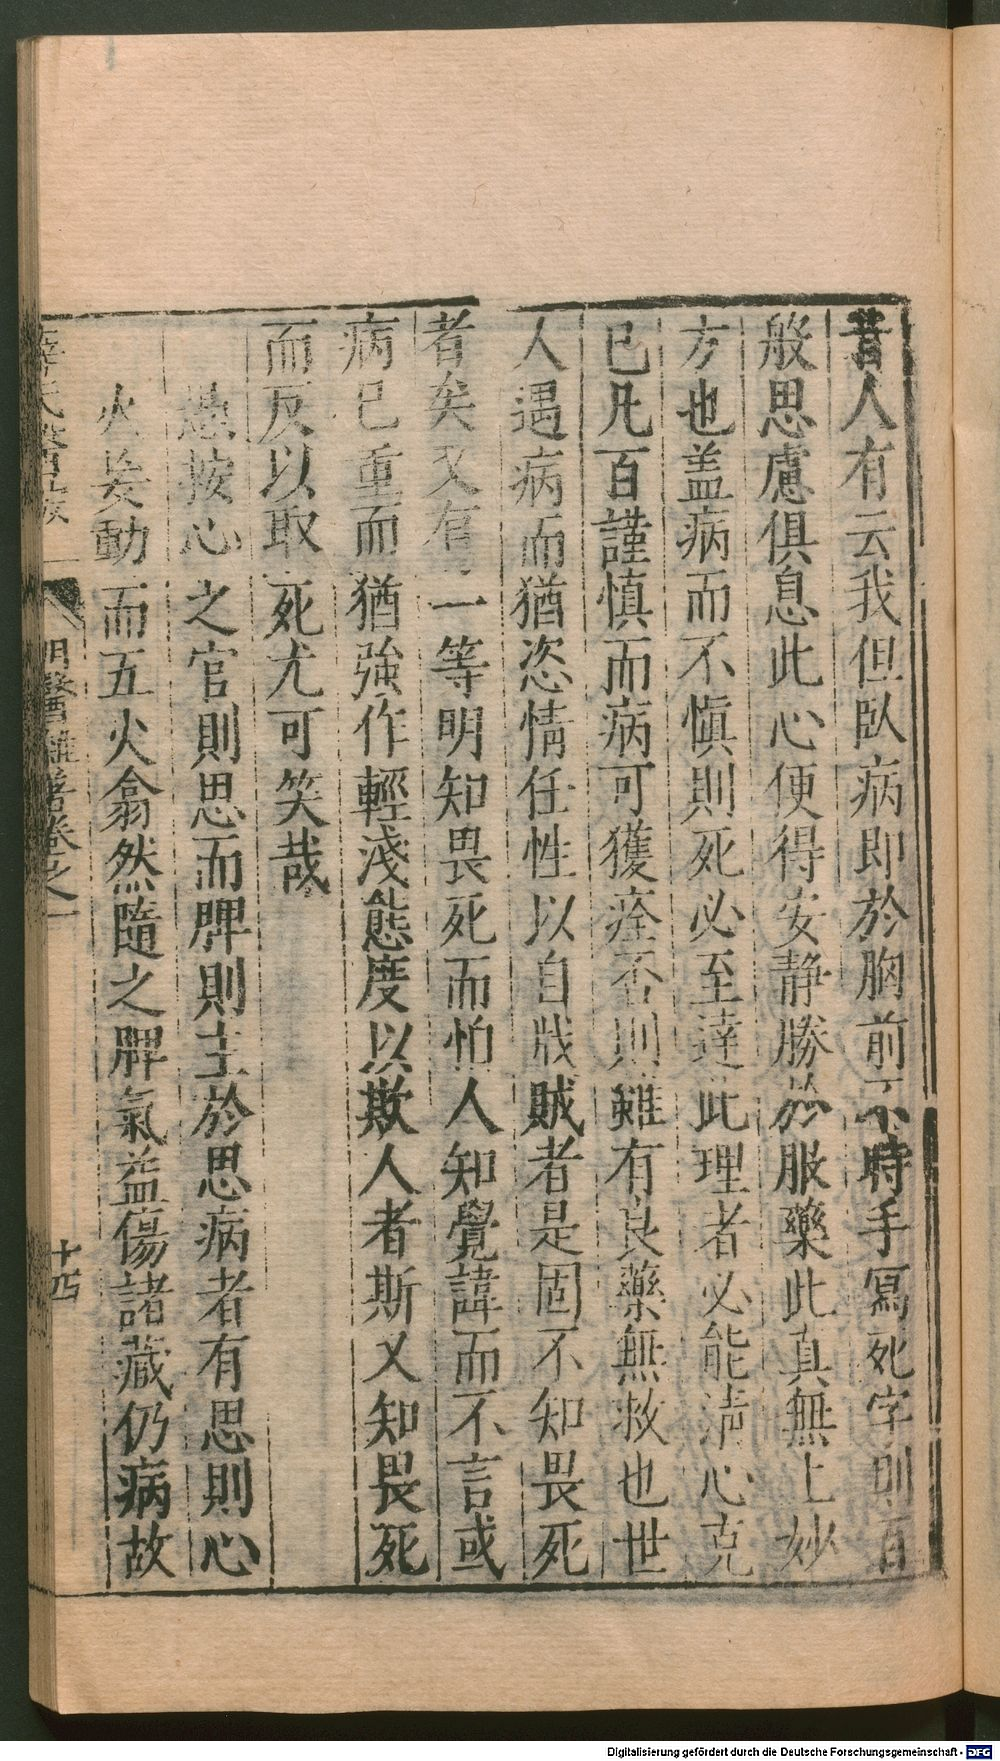 昔人有云我但臥病即於胸前不時手寫死字則百
般思慮俱息此心便得安靜勝於服藥此真無上妙
方也盖病而不慎則死必至達此理者必能清心克
已凡百謹慎而病可獲痊否則雖有良藥無救也世
人遇病而猶恣情任性以自戕賊者是固不知畏死
者矣又有一等明知畏死而怕人知覺諱而不言或
病已重而猶強作輕淺態度以欺人者斯又知畏死
而反以取死尤可笑哉
愚按心之官則思而脾則主於思病者有思則心
火妄動而五火翕然隨之脾氣益傷諸藏仍病故
薛氏醫按
明醫雜著卷之一
十四
Digitalisierung gefördert durch die Deutsche Forschungsgemeinschaft - DFG